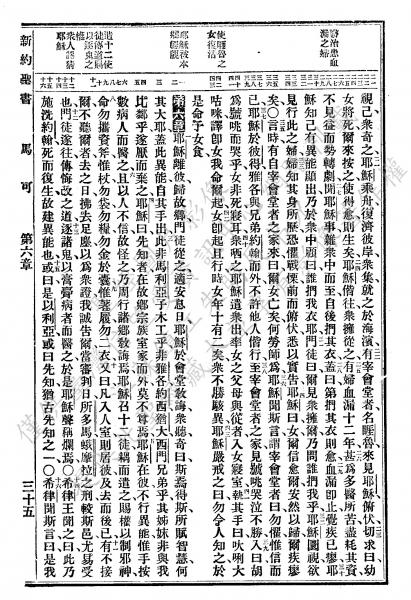 醫治患血
漏之婦
使睚魯之
女復活
耶穌被本
鄉藐視
遣十二使
徒得道賜
以異良之
權
衆人評論
耶穌
視己衆奇之耶穌乘舟復濟彼岸衆集就之於海濱有宰會堂者名睚魯來見耶穌俯伏切求曰幼
女將死爾來按之使得愈則生矣耶穌偕往衆擁從之有婦血漏十二年甚為多醫所苦盡耗其資
不見益而勢轉劇聞耶穌事雜衆中而至自後捫其衣蓋曰第捫其衣則愈血漏即止覺疾已瘳耶
穌知己有異能顯出乃於衆中顧曰誰捫我衣門徒曰爾見衆擁爾乃問誰捫我乎耶穌圜視欲
見行此之婦婦知其身所歷恐懼戰慄前而俯伏悉以實告耶穌曰女爾信愈爾安然以歸爾疾瘳
矣〇言時有自宰會堂者之家來曰爾女亡矣何勞師為耶穌聞斯言謂宰會堂者曰勿懼惟信而
已耶穌於彼得雅各與兄弟約翰而外不許他人偕行至宰會堂者之家見號咷哭泣不勝入曰胡
為號咷而哭乎女非死寢耳衆哂之耶穌遣衆出率女之父母與從者入女寢室執其手曰呔唎大
咕咪譯即女我命爾起女即起且行時女年十有二矣衆不勝駭異耶穌嚴戒之曰勿令人知之於
是命予女食
第六章 耶穌離彼歸故鄉門徒從之適安息日耶穌於會堂教誨衆聽奇曰斯焉得斯所賦智慧何
其大耶甚此異能自其手出此非馬利亞子木工乎非雅各約西猶大西門兄弟乎其姊妹非與我
比鄰乎遂厭而棄之耶穌曰先知者在故鄉宗族室家而外莫不尊焉耶穌在彼不行異能惟手按
數病人而醫之且以人不信故怪之乃周行諸鄉教誨焉耶穌召十二徒耦而遣之賜權以制邪神
命勿攜資斧惟杖勿袋勿糧勿金於囊惟著履勿二衣又曰凡入人室則居彼及去而後已有不接
爾不聽爾者去之日拂去足塵以為衆證我誠告爾當審判日所多馬蛾摩拉之刑較斯邑尤易受
也門徒遂往傳悔改之道逐諸鬼以膏膏病者而醫之於是耶穌聲稱爛焉〇希律王聞之曰此乃
施洗約翰死而復生故建異能也或曰是以利亞或曰先知猶古先知之一〇希律聞斯言曰是我
新約聖書 馬可 第六章 三十五